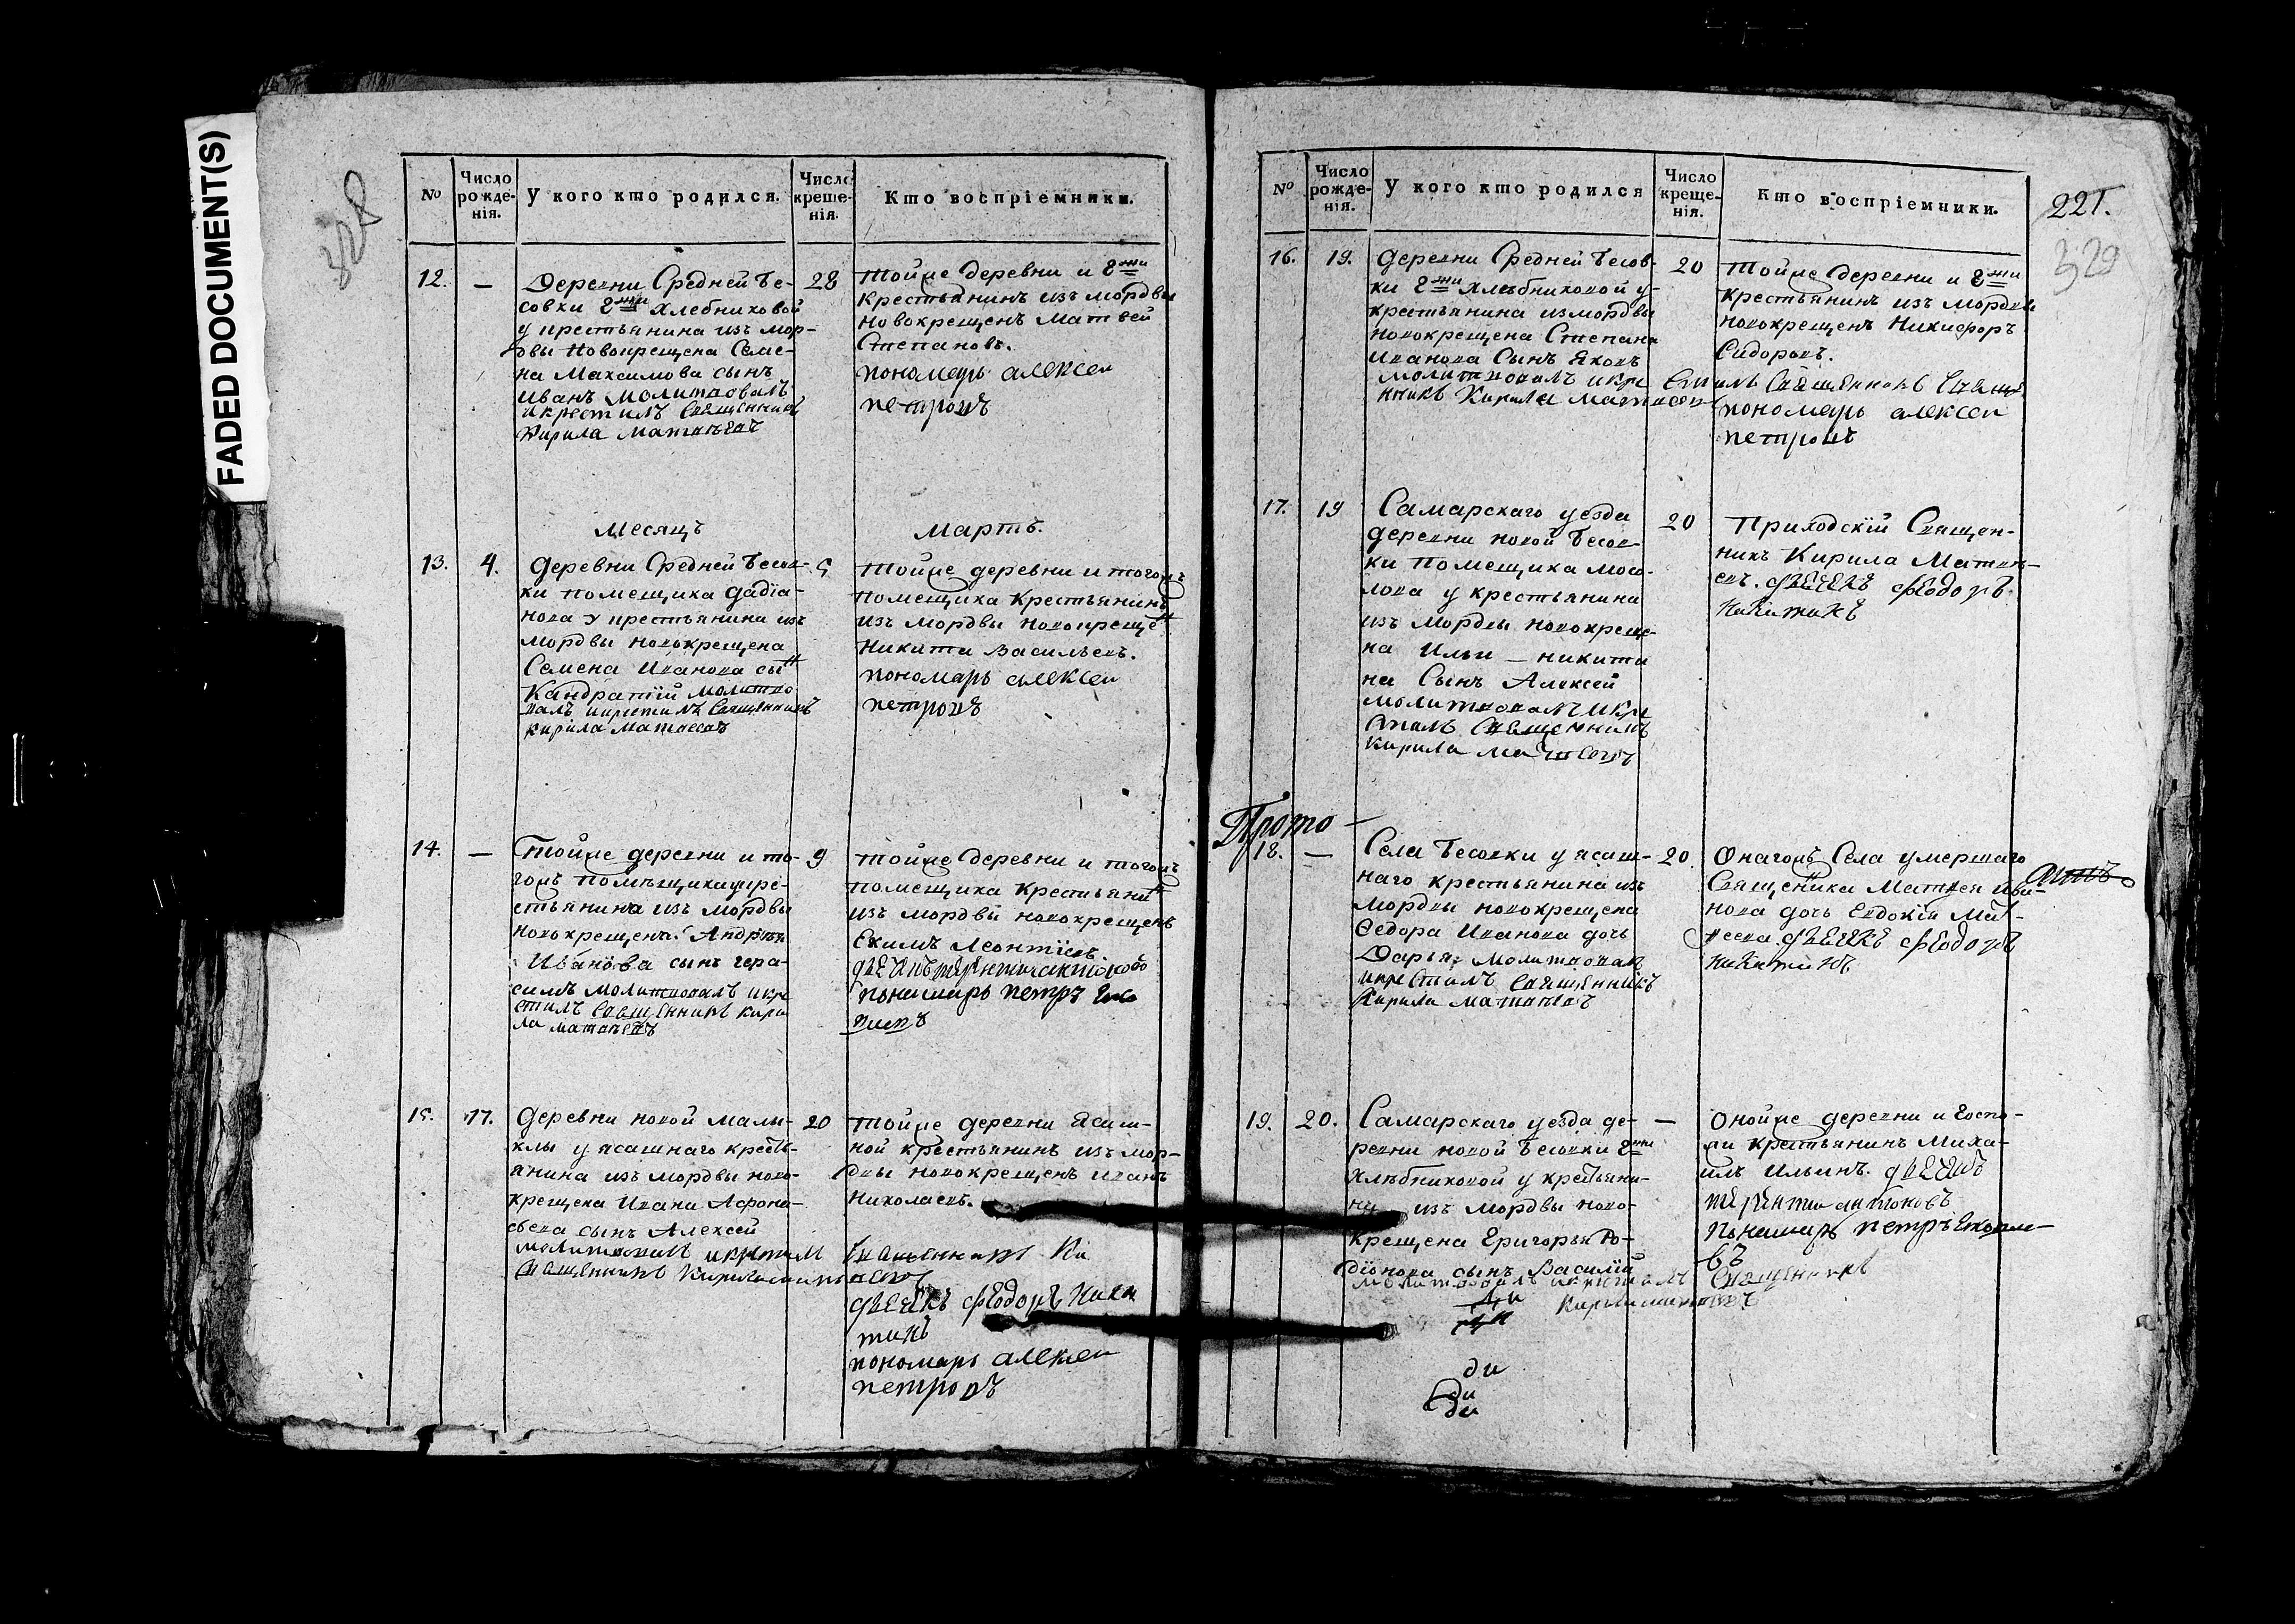 FADED DOCUMENT(S)
328
№
Число рожде-нія.
У кого кто родился.
Число креще-нія.
Кто воспріемники.
12.
—
Деревни Средней Бе-
совки Гжи Хлебниковой
у крестьянина изъ мор-
двы новокрещена Семе-
на Максимова сынъ
Иванъ молитвовалъ
и крестилъ священникъ
Кирила Матвѣевъ
28
тойже деревни и Гжи
крестьянинъ изъ мордвы
новокрещенъ Матвей
Степановъ.
пономарь алексеи
петровъ
Месяцъ
Мартъ.
13.
4.
деревни Средней Бесов-
ки помещика Дадїа-
нова у крестьянина изъ
мордвы новокрещена
Семена Иванова сынъ
Кандратїй молитво
валъ и крестилъ священникъ
кирила матвеевъ
5
тойже деревни и тогожъ
помещика крестьянинъ
изъ мордвы новокрещен
Никита Васильевъ.
пономарь алексеи
петровъ
14.
—
Тойже деревни и то-
гожъ помѣщика у кре-
стьянина изъ мордвы
новокрещена Андрея
Иванова сынъ гера-
симъ молитвовалъ и кре
стилъ священникъ кири
ла матвѣевъ
9
тойже деревни и тогожъ
помещика крестьянинъ
изъ мордвы новокрещенъ
Екимъ Леонтїевъ.
понамарь петръ
15.
17.
деревни новой Малы-
клы у ясашнаго кресть-
янина изъ мордвы ново-
крещена Ивана Афона-
сьева сынъ Алексей
молитвовалъ и крестилъ
священникъ Кирила матвѣевъ
20
тойже деревни ясаш-
ной крестьянинъ изъ мор-
двы новокрещенъ Иванъ
Николаевъ.
дьячекъ Феодоръ Ники
тинъ
пономарь алексеи
петровъ
№
Число рожде-нія.
У кого кто родился
Число креще-нія.
Кто воспріемники.
221.
329
16.
19.
деревни Средней Бесов-
ки Гжи Хлѣбниковой у
крестьянина изъ мордвы
новокрещена Степана
Иванова Сынъ Яковъ
молитвовалъ и кре стилъ Священникъ
Кирила Матвеевъ
20
тойже деревни и Гжи
крестьянинъ изъ мордвы
новокрещенъ Никифоръ
Сидоровъ.
пономарь алексеи
петровъ
17.
19
Самарскаго уезда
деревни новой Бесов-
ки помещика Мосо-
лова у крестьянина
изъ мордвы новокреще-
на Ильи — никити
на Сынъ Алексей
молитвовалъ и кре
стилъ священникъ
Кирила матвеевъ
20
Приходскїй Священ-
никъ Кирила Матвѣ-
евъ. дьячекъ Феодоръ
Никитинъ
Прото —
18.
—
Села Бесовки у ясаш-
наго крестьянина изъ
мордвы новокрещена
Федора Иванова дочь
Дарья: молитвовалъ
и крестилъ священникъ
Кирила матвѣевъ
20.
Онагожъ Села умершаго
Священика Матвея Ива-
нова дочь Евдокїя Мат-
веева дьячекъ Феодоръ
никитинъ
19.
20.
Самарскаго уезда де-
ревни новой Бесовки Гжи
Хлѣбниковой у крестьяни-
на изъ мордвы ново-
крещена Григорья Ро-
дїонова сынъ Василїй
молитвовалъ и крестилъ священникъ
Кирила матвѣевъ
—
Онойже деревни и госпо-
жи крестьянинъ Миха-
илъ Ильинъ. дьячекъ
терентии антоновъ
понамарь петръ
въ
ди
ди
ди